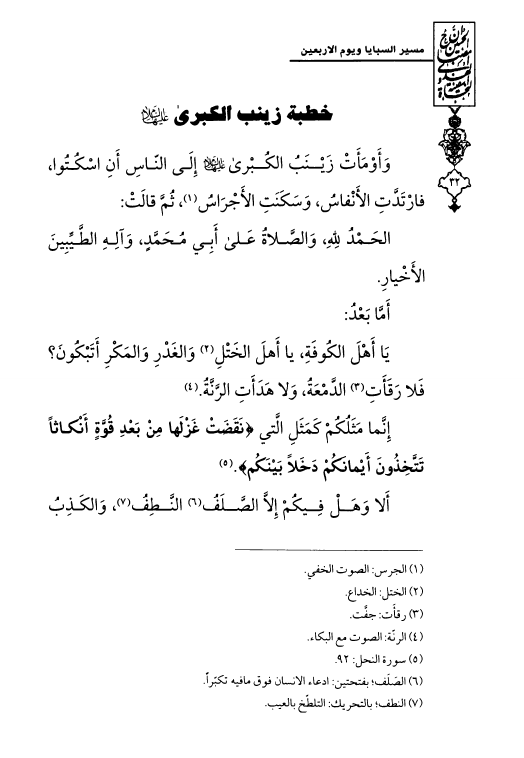 مسير السبايا ويوم الاربعين
٣٢
خطبة زينب الكبرىٰ عليها السلام
وَأَوْمَأَتْ زَيْنَبُ الكُبْرىٰ عليها السلام إِلَى النّاسِ أَنِ اسْكُتُوا،
فارْتَدَّتِ الأَنْفاسُ، وَسَكَنَتِ الأَجْراسُ(١)، ثُمَّ قالَتْ:
الحَمْدُ لِلهِ، وَالصَّلاةُ عَلىٰ أَبِي مُحَمَّدٍ، وَآلِهِ الطَّيِّبِينَ
الأَخْيارِ.
أَمَّا بَعْدُ:
يَا أَهْلَ الكُوفَةِ، يا أَهلَ الخَتْلِ(٢) وَالغَدْرِ وَالمَكْرِ أَتَبْكُونَ؟
فَلا رَقَأَتِ(٣) الدَّمْعَةُ، وَلا هَدَأَتِ الرَّنَّةُ.(٤)
إِنَّما مَثَلُكُمْ كَمَثَلِ الَّتي ﴿نَقَضَتْ غَزْلَها مِنْ بَعْدِ قُوَّةٍ أَنْكاثاً
تَتَّخِذُونَ أَيْمانَكُمْ دَخَلاً بَيْنَكُم﴾.(٥)
أَلا وَهَلْ فِيكُمْ إِلاَّ الصَّلَفُ(٦) النَّطِفُ(٧)، وَالكَذِبُ
(١) الجرس: الصوت الخفي.
(٢) الختل: الخداع.
(٣) رقأت: جفّت.
(٤) الرنّة: الصوت مع البكاء.
(٥) سورة النحل: ٩٢.
(٦) الصّلَف؛ بفتحتين: ادعاء الانسان فوق مافيه تكبّراً.
(٧) النطف؛ بالتحريك: التلطّخ بالعيب.